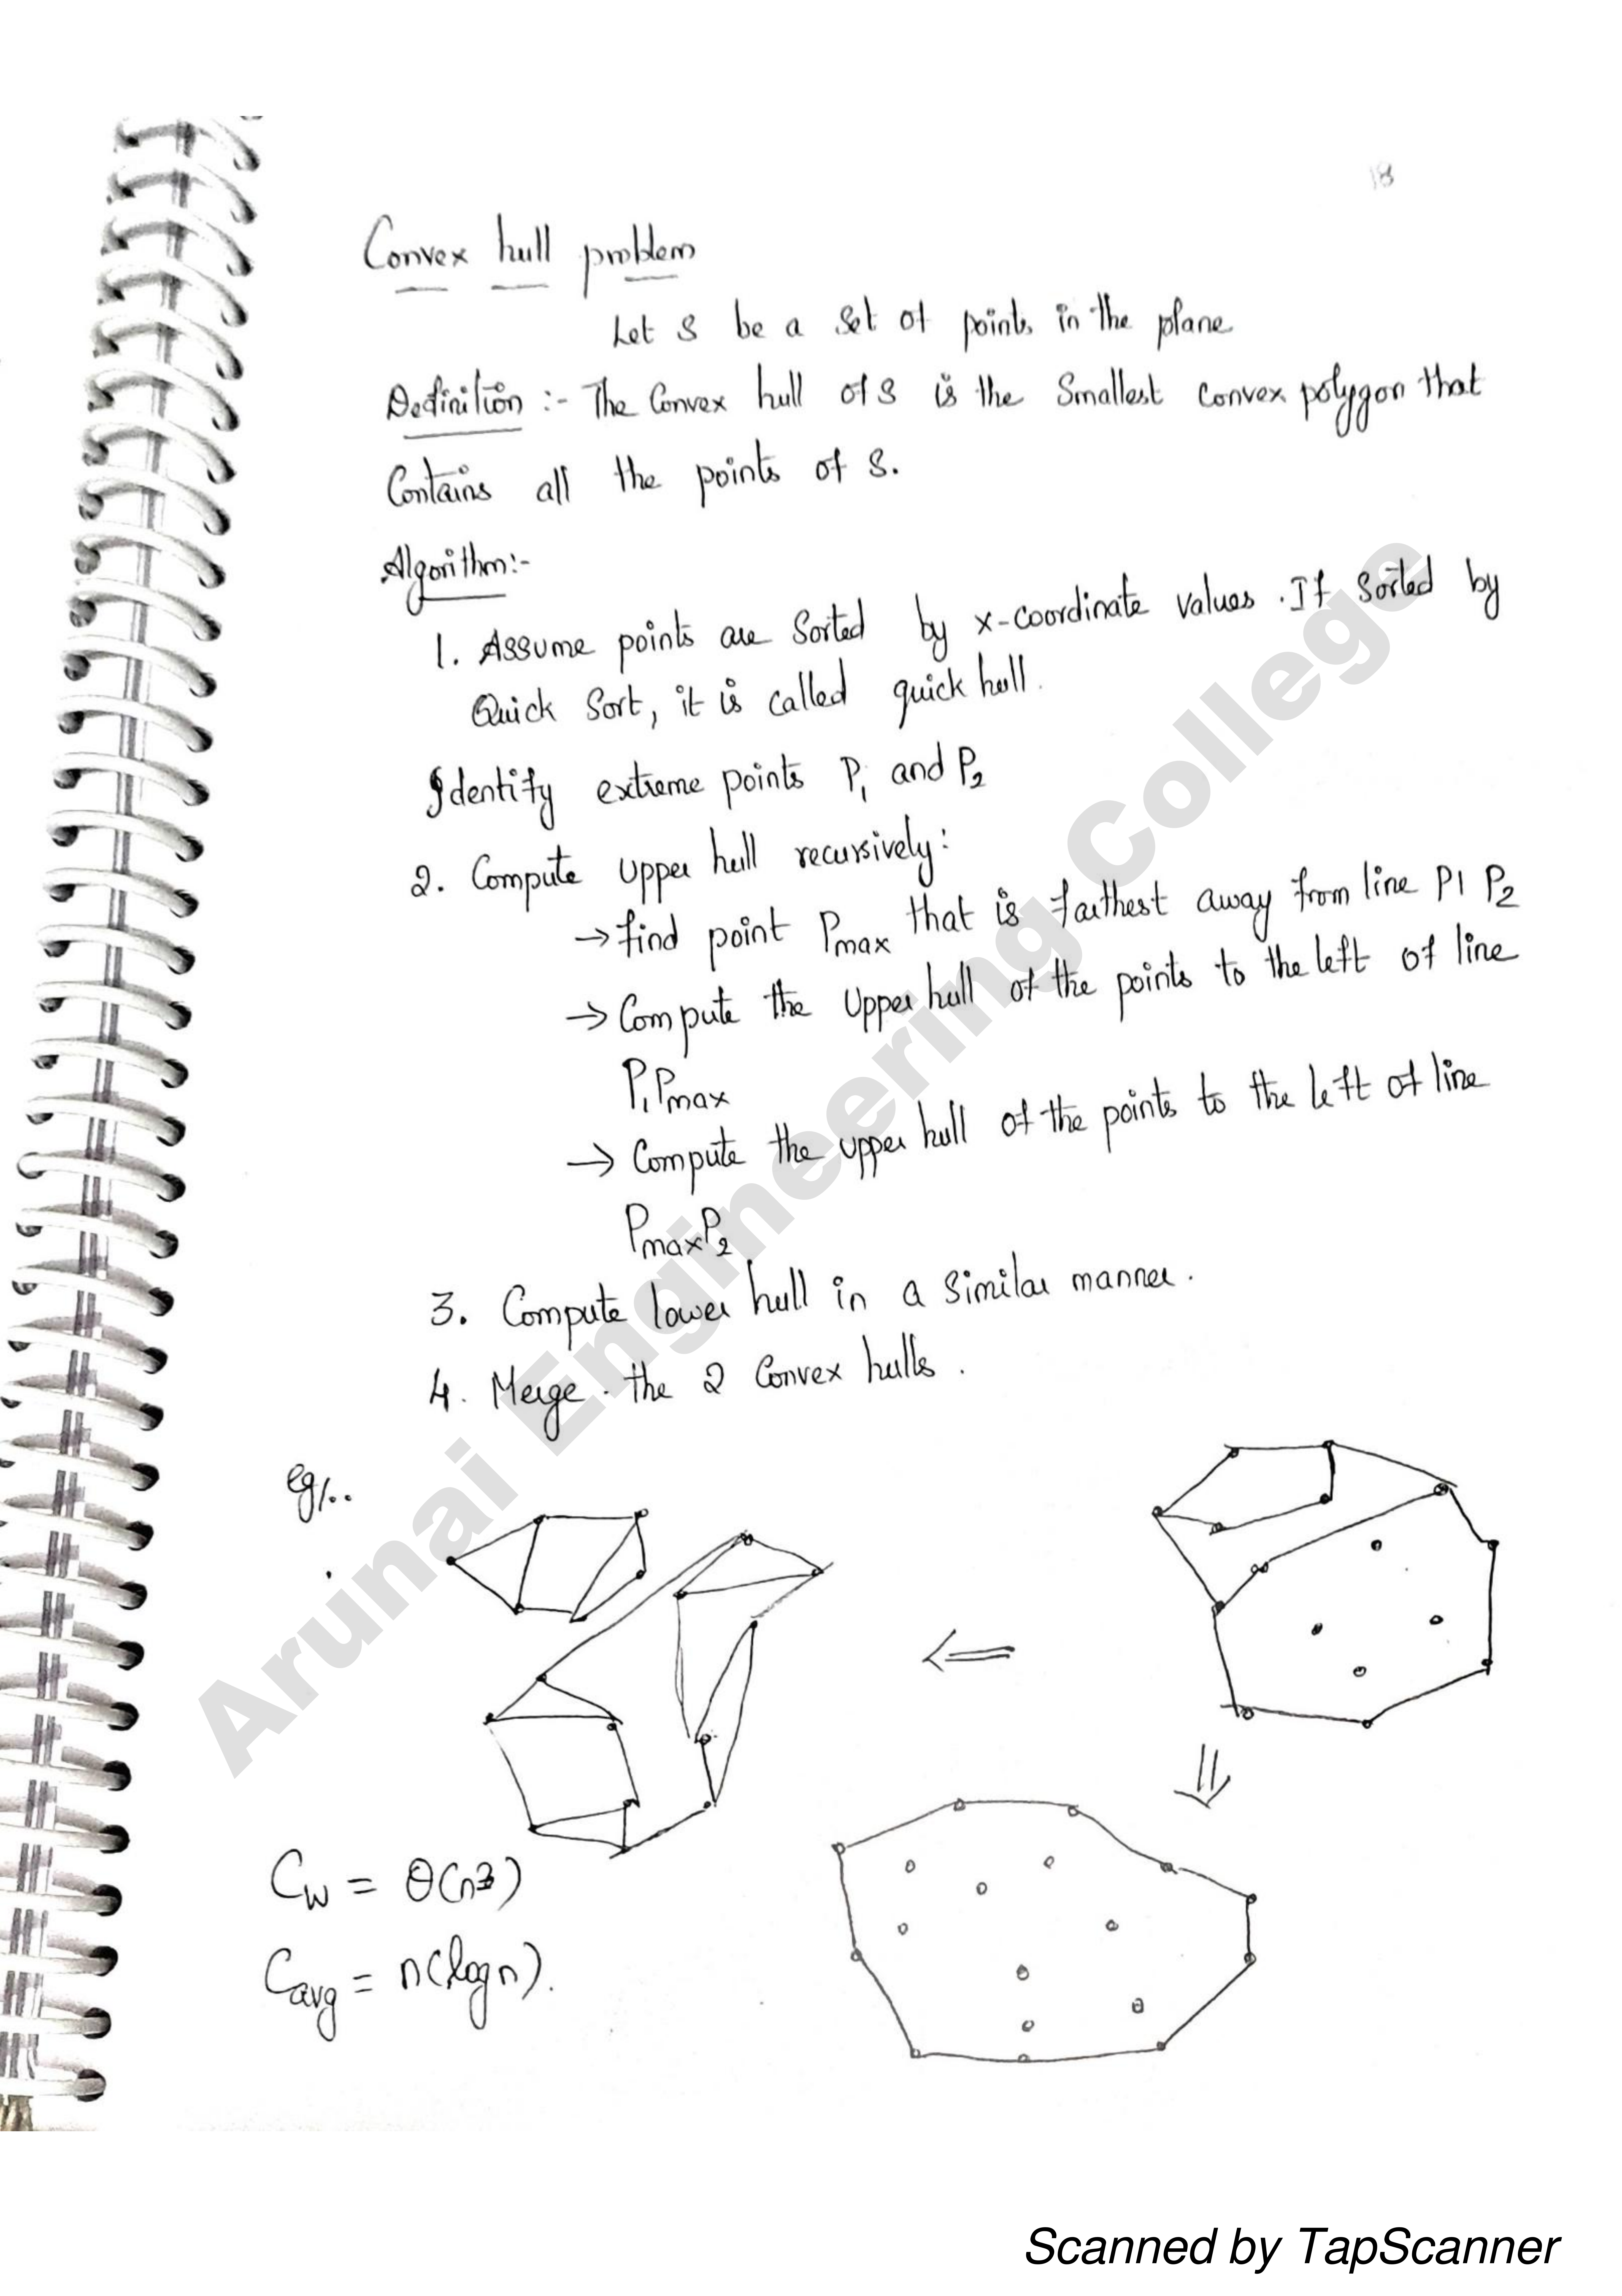 18
Convex hull problem
Let S be a set of points in the plane
Definition :- The Convex hull of S is the Smallest Convex polygon that
Contains all the points of S.
Algorithm:-
1. Assume points are Sorted by x-coordinate values. If Sorted by
Quick Sort, it is called quick hull.
Identify extreme points P1 and P2
2. Compute Upper hull recursively:
→ find point Pmax that is farthest away from line P1 P2
→ Compute the Upper hull of the points to the left of line
P1Pmax
→ Compute the upper hull of the points to the left of line
PmaxP2
3. Compute lower hull in a Similar manner.
4. Merge. the 2 Convex hulls.
eg/..
⇐
⇓
Cw = θ(n3)
Cavg = n(logn).
Arunai Engineering College
Scanned by TapScanner